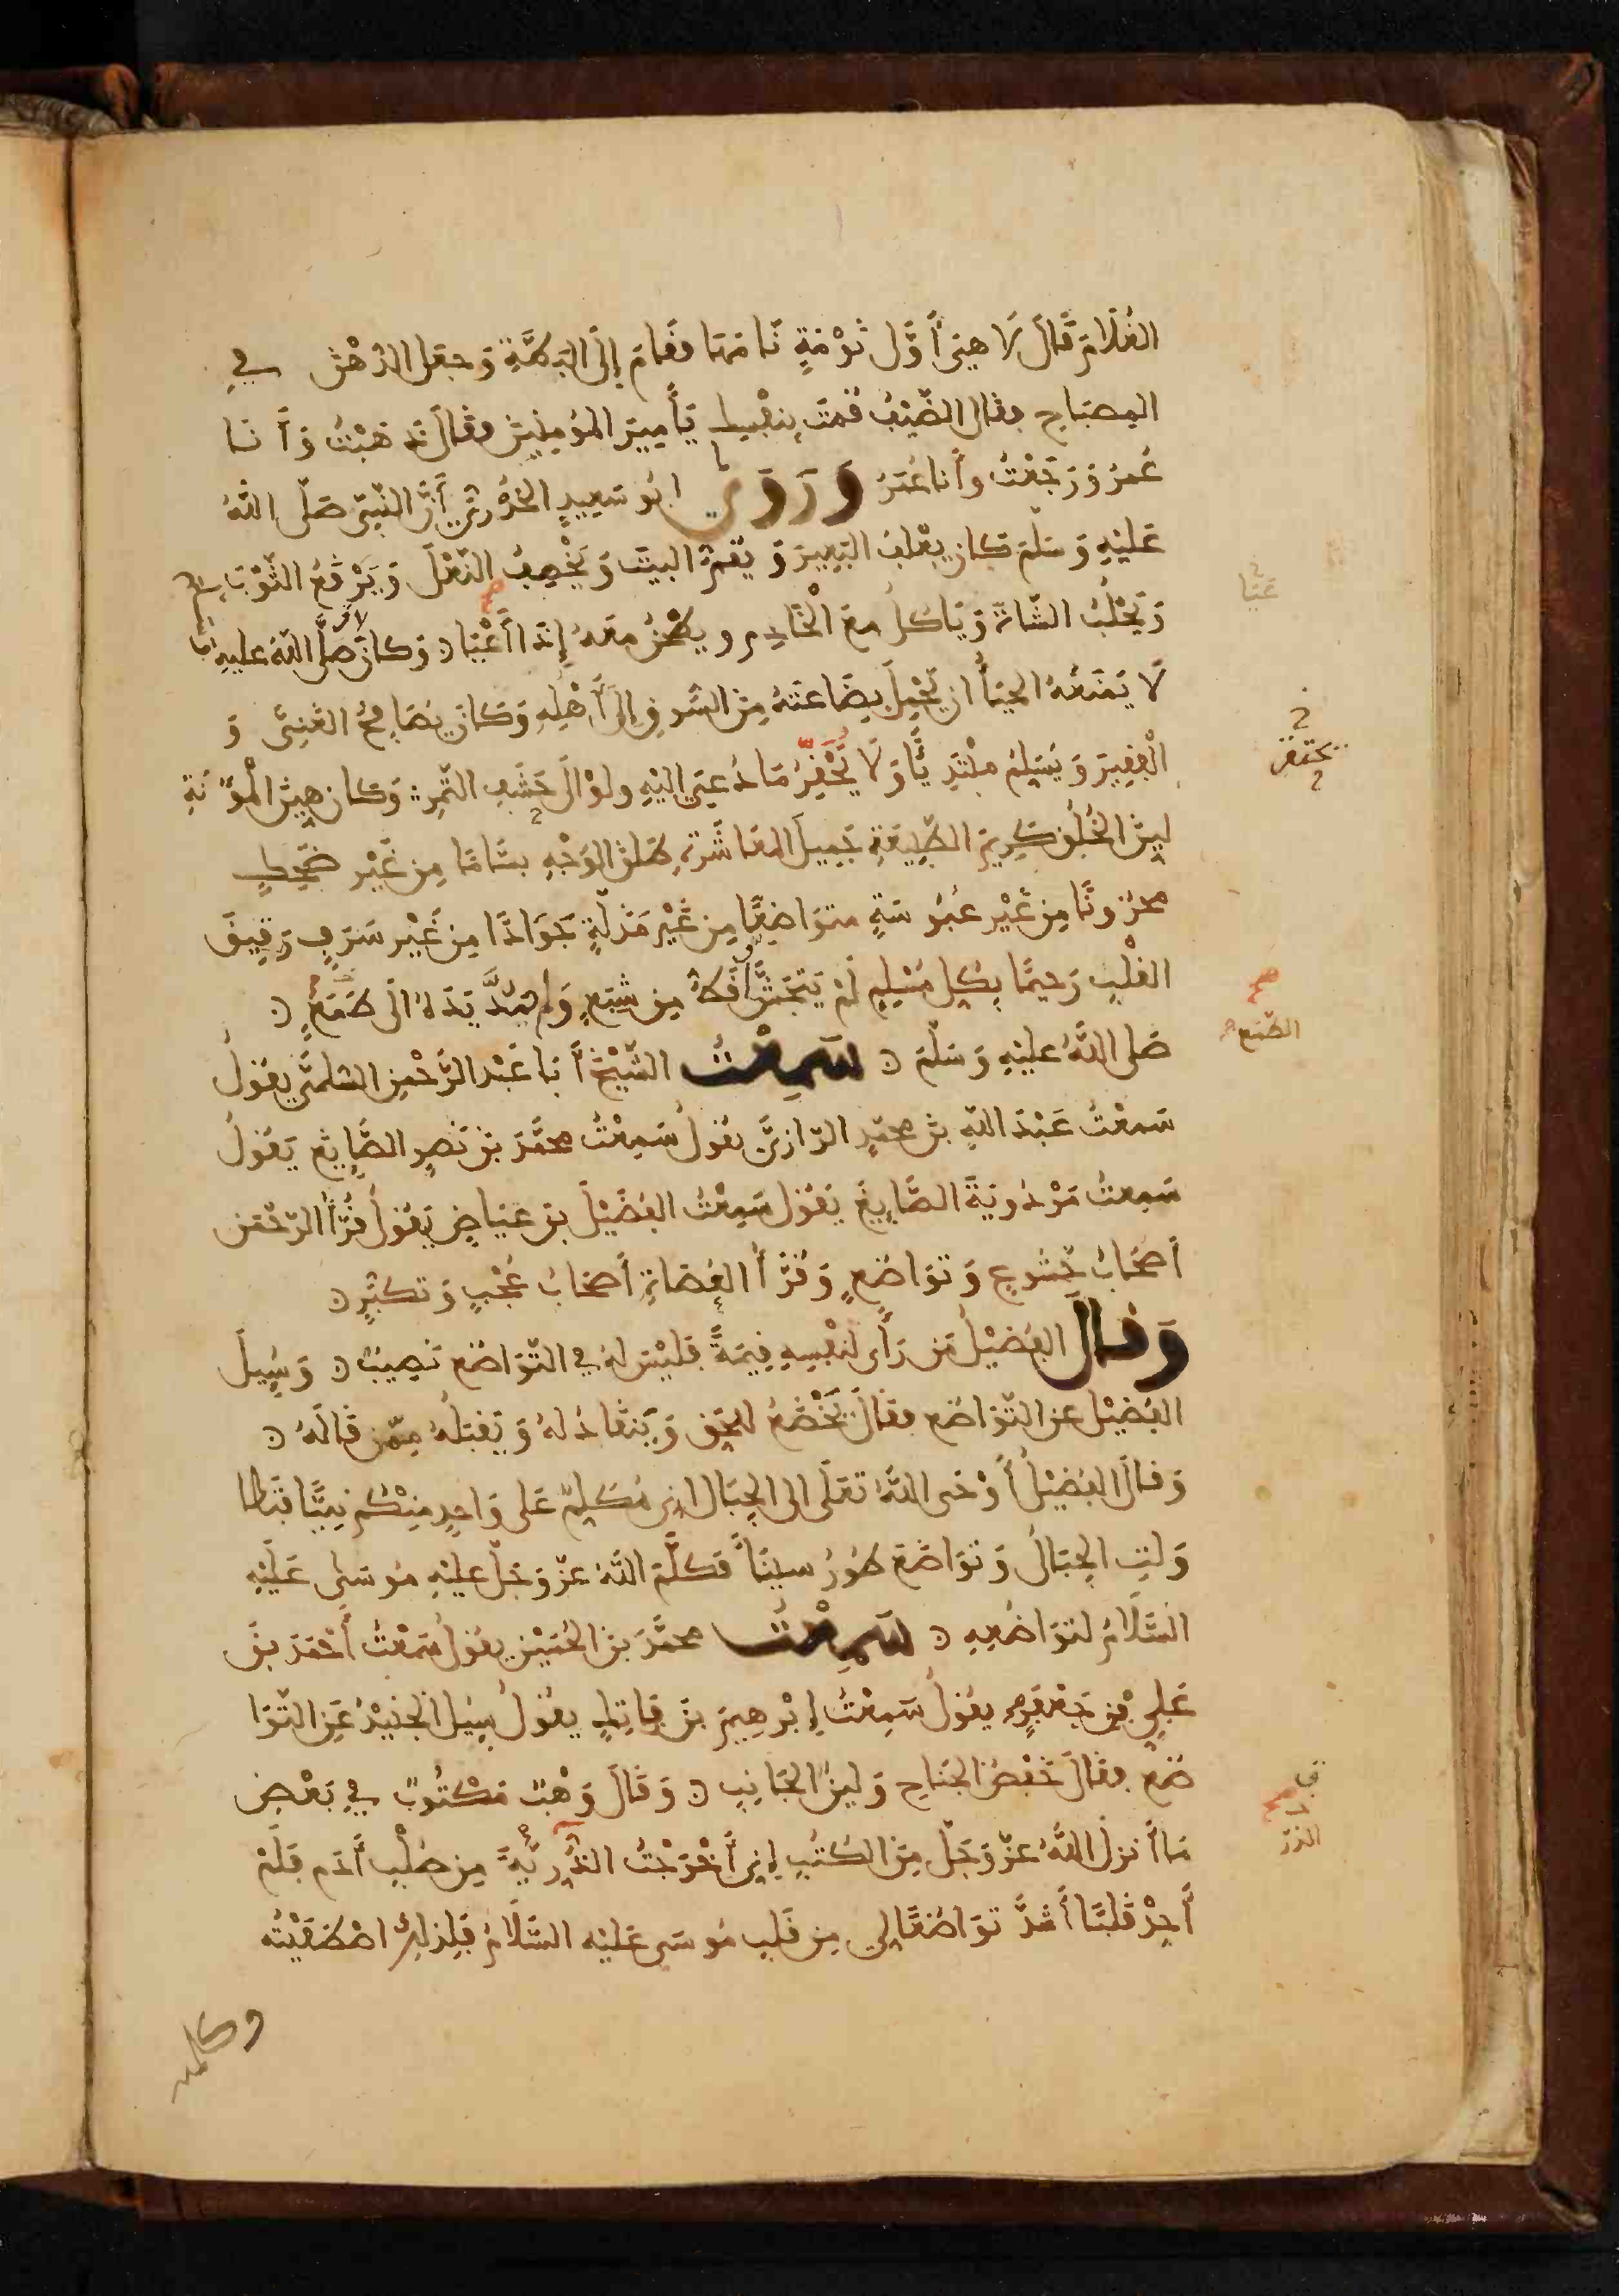 الغُلَامَ قَالَ لَا هِيَ أَوَّلُ نَوْمَةٍ نَامَهَا فقَامَ إِلَى البَطَّةِ وَجعَل الدُّهْنَ في
المِصبَاح فقال الضَّيْفُ قُمْتَ بِنَفْسِكَ يَا أَمِيرَ المُؤمِنِينَ فقَالَ ذَهَبْتُ وَأَنَا
عُمَرُ وَرَجَعْتُ وأَنا عُمَرُ وَرَوَى ابُو سَعِيدٍ الخُدْرِيّ أَنَّ النَّبِيّ صَلَّى اللَّهُ
عَلَيْهِ وَسَلَّمَ كَانَ يعْلِفُ البَعِيرَ وَيَقُمُّ البيتَ وَيَخْصِفُ النَّعْلَ وَيَرْقَعُ الثَّوْبَ
وَيَحْلُبُ الشَّاةَ وَيَاكُلُ معَ الْخَادِمِ ويطْحَنُ معَهُ إِذَا أَعْيَا وَكانَ صَلَّى اللَّهُ عليهِ
لَا يَمْنَعُهُ الحَيَاءُ ان يَحْمِلَ بِضَاعَتَهُ مِنَ السُّوقِ إِلَى أَهْلِهِ وَكَانَ يُصَافِحُ الغَنِيَّ وَ
الْفَقِيرَ وَيُسَلِّمُ مبْتَدِيًّا وَلَا يُحَقِّرُ مَا دُعِيَ إِلَيْهِ ولوْ الَى حَشَفِ التَّمرِ وَكان هيِّنَ الْمُؤَنَةِ
ليِّنَ الخُلُقِ كَرِيمَ الطَّبِيعَةِ جَمِيلَ المُعَاشَرَةِ طَلْقَ الوَجْهِ بسَّامًا مِن غَيْر ضَحِكٍ
محزُونًا مِن غَيْرِ عُبُوسَةٍ متوَاضِعًا مِن غَيْرِ مَذَلَّةٍ جَوَادًا مِن غَيْر سَرَفٍ رَقِيقَ
القَلْبِ رَحِيمًا بِكُلِّ مُسْلِمٍ لَمْ يَتَجَشَّأْ قَطُّ مِن شِبَعٍ وَلم يَمُدَّ يَدَهُ الَى طَمَعٍ
صَلى اللَّهُ علَيْهِ وَسَلَّمَ سَمِعْتُ الشَّيْخَ أَبَا عَبْدِ الرَّحْمنِ السُّلَمِيَّ يقُولُ
سَمعْتُ عَبْدَ اللَّهِ بْنَ محمَّدٍ الرَّازِيَّ يقُولُ سَمِعْتُ محمَّدَ بنَ نَصرٍ الصَّايِغَ يَقُولُ
سَمِعتُ مَرْدُويَةَ الصَّايِغَ يَقُول سَمِعْتُ الفُضَيْلَ بنَ عِيَاضٍ يَقُولُ قُرَّاءُ الرَّحْمَن
أَصْحَابُ خُشُوعٍ وَتوَاضُعٍ وَقُرَّاءُ القُضَاةِ أَصحَابُ عُجْبٍ وَتكبُّرٍ
وَقَالَ الفُضَيْلُ مَن رَأَى لنَفْسِهِ قِيمَةً فلَيْسَ لهُ في التَّوَاضُعِ نَصِيبٌ وَسُئِلَ
الفُضَيْل عن التَّوَاضُع فقَالَ يَخْضَعُ للحَقِّ وَيَنقَادُ لهُ وَيَقبَلُهُ مِمَّن قَالَهُ
وَقالَ الفُضَيْلُ أَوْحَى اللَّهُ تعَلَى الى الجِبَال انِى مُكَلِّمٌ عَلَى وَاحِدٍ مِنْكُم نَبِيًّا فتَطَا
وَلتِ الجِبَالُ وَتوَاضَعَ طُورُ سِينَاءَ فكلَّمَ اللَّهُ عزّ وَجَلّ علَيْهِ مُوسَى عَلَيْهِ
السَّلَامُ لتوَاضُعِهِ سَمِعْتُ محمَّدَ بنَ الحُسَيْنِ يقُولُ سَمِعْتُ أَحْمَدَ بنَ
عَلِيّ بْنِ جَعْفَرٍ يقُولُ سَمِعْتُ إِبْرهِيمَ بنَ فاتِكٍ يقُولُ سُئِلَ الجُنَيْدُ عَنِ التَّوَا
ضُع فقَالَ خَفْضُ الجَنَاحِ وَلِينُ الجَانِبِ وَقَالَ وَهْبٌ مَكْتُوبٌ في بَعْضِ
مَا أَنزلَ اللَّهُ عزّ وَجَلّ مِنَ الكُتُبِ إِنِى أَخْرَجْتُ الذَّرَّ مِن صُلْبِ أَدَم فَلَمْ
أَجِدْ قَلبًا أَشَدَّ توَاضُعًا إِلَي مِن قَلبِ مُوسَى عَلَيْهِ السَّلَامُ فَلِذلِكَ اصْطَفَيْتُه
وكلمته
عَيَا
يحتقر
الطمع
الذرّ